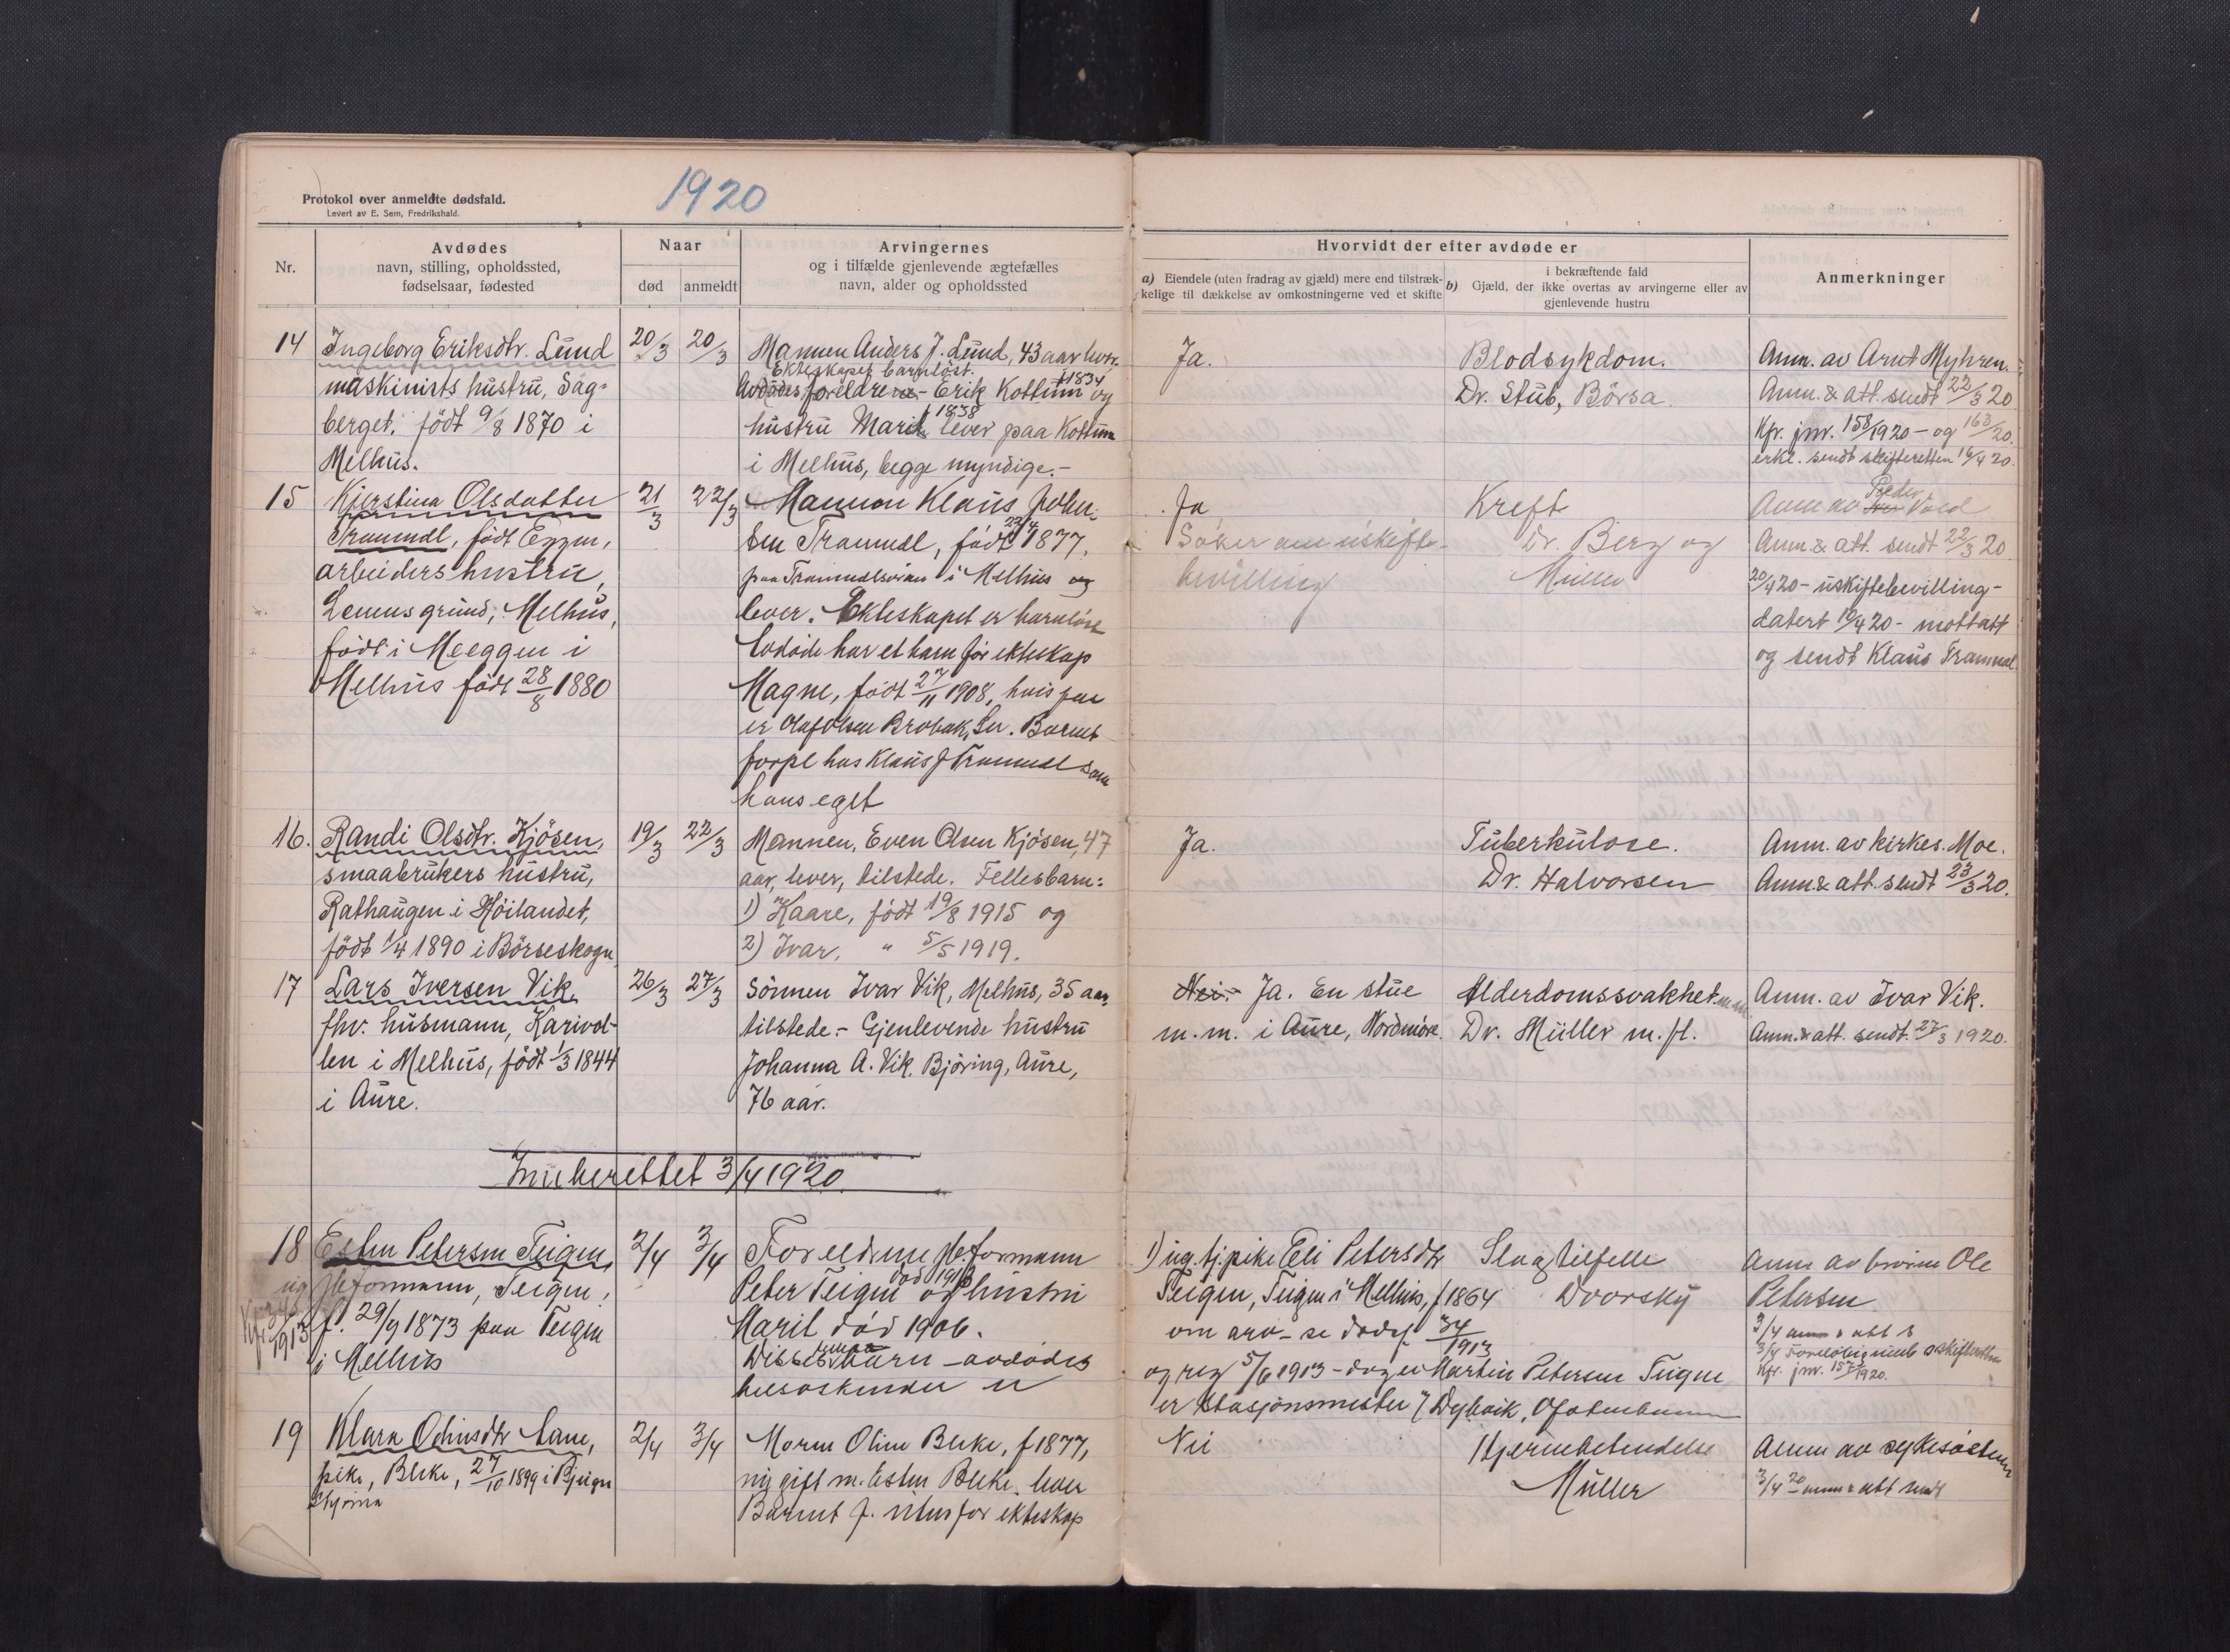 Protokol over anmeldte dødsfald.
Levert av E. Sem, Fredrikshald.
1920
Nr.
Avdødes
navn, stilling, opholdssted,
fødselsaar, fødested
Naar
død
anmeldt
Arvingernes
og i tilfælde gjenlevende ægtefælles
navn, alder og opholdssted
Hvorvidt der efter avdøde er
a) Eiendele (uten fradrag av gjæld) mere end tilstræk-
kelige til dækkelse av omkostningerne ved et skifte
i bekræftende fald
b) Gjæld, der ikke overtas av arvingerne eller av
gjenlevende hustru
Anmerkninger
14
Ingeborg Eriksdtr. Lund
maskinists hustru, Sag-
berget, födt 9/8 1870 i
Melhus.
20/3
20/3
Mannen Anders J. Lund, 43 aar
Ekteskapet barnlöst.
Avdödes foreldre - Erik Kottum f 1834 og
hustru Marit f 1838 lever paa Kottum
i Melhus, begge myndige.-
Ja.
Blodsykdom.
Dr. Stub, Börsa.
Anm. av Arnt Myhren.
Anm. & att. sendt 22/3 20
Kfr. jnr. 158/1920 - og 163/20.
erkl. sendt skifteretten 16/4 20.
15
Kjerstina Olsdatter
Tranmdl, födt Eggen,
arbeiders hustru,
Lenens grund, Melhus,
födt i Meeggen i
Melhus födt 28/8 1880
21/3
22/3
Mannen Klaus John-
sen Tranmdl, födt 22/4 1877,
paa Tranmdlsöien i Melhus og
lever. Ekteskapet er barnlöst
Avdöde har et barn för ekteskap
Magne, födt 27/11 1908, hvis far
er Olaf Olsen Brobak, . Barnet
forpl hos Klaus J Tranmdl som
hans eget
Ja
Söker om uskifte-
bevilling
Kreft
Dr. Berg og
Müller
Anm av Peder Voll
Anm. & att. sendt 22/3 20
20/4 20 - uskiftebevilling -
datert 10/4 20 - mottatt
og sendt Klaus Tranmæl.
16.
Randi Olsdtr. Kjösen,
smaabrukers hustru,
Rathaugen i Höilandet,
födt 1/4 1890 i Börseskogn
19/3
22/3
Mannen, Even Olsen Kjösen, 47
aar, lever, tilstede. Fellesbarn:
1) Kaare, födt 19/8 1915 og
2) Ivar, " 5/5 1919.
Ja.
Tuberkulose.
Dr. Halvorsen
Anm. av kirkes. Moe.
Anm & att. sendt 23/3 20.
17
Lars Iversen Vik
fhv. husmann, Karivol-
len i Melhus, födt 1/3 1844
i Aure.
26/3
27/3
Sönnen Ivar Vik, Melhus, 35 aar,
tilstede.- Gjenlevende hustru
Johanna A. Vik, Björing, Aure,
76 aar.
Nei. Ja. En stue
m.m. i Aure, Nordmöre.
Alderdomssvakhet m.m.
Dr. Müller m.fl.
Anm. av Ivar Vik.
Anm. & att. sendt 27/3 1920.
Inuberettet 3/4 1920.
18
Esten Petersen Teigen,
ug jleformann, Teigen,
f. 29/9 1873 paa Teigen
i Melhus
Kfr. 34/1913
2/4
3/4
Foreldrene jleformann
Peter Teigen död 1913 og hustru
Marit död 1906.
Disses barn - avdödes
helsöskender er
1) ug. tj.pike Eli Petersdtr
Teigen, Teigen i Melhus, f 1864
om arv - se dödsf. 34/1913
og reg 5/6 1913 - dog er Martin Petersen Teigen
er stasjonsmester i Dybvik, Ofotenbanen
Slagtilfelle
Dvorsky
Anm av broren Ole
Petersen
3/4 anm & att s
3/4 Foreløbig meld skifteretten
Kfr. jnr. 157/1920.
19
Klara Odinsdtr Lane,
pike, Bleke, 27/10 1899 i Bjeign
Stjørna
2/4
3/4
Moren Oline Bleke, f 1877,
ny gift m. Esten Bleke, lever
Barnet f. utenfor ekteskap
Nei
Hjernebetendelse
Müller
Anm av sykesösteren
3/4 20 anm & att sendt